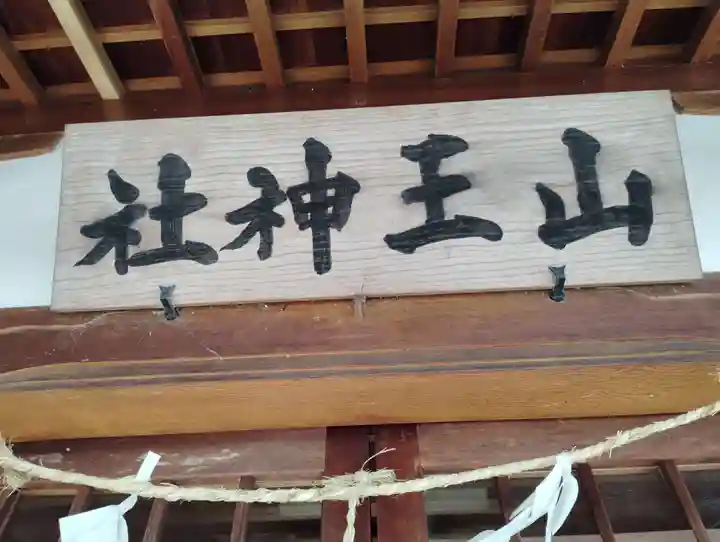 山王神社